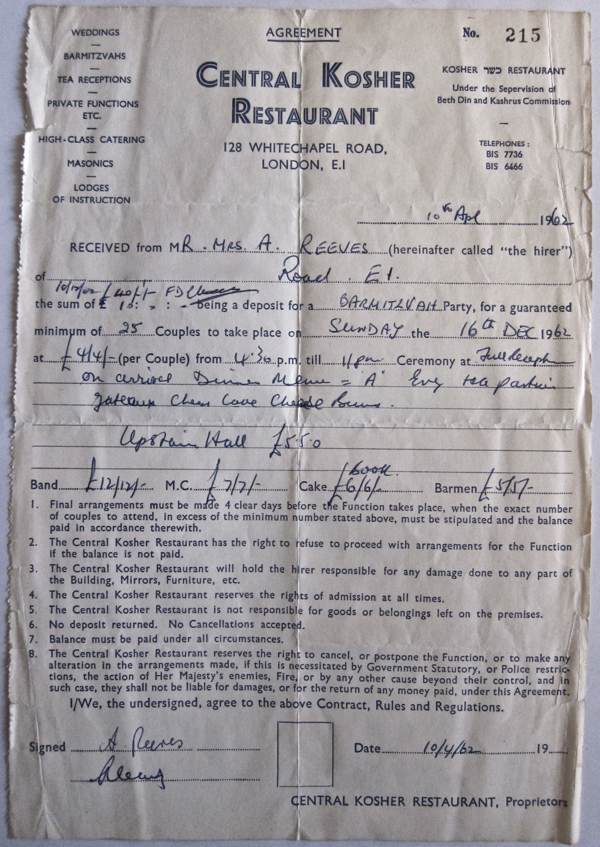 WEDDINGS
—
BARMITZVAHS
—
TEA RECEPTIONS
—
PRIVATE FUNCTIONS
ETC.
—
HIGH-CLASS CATERING
—
MASONICS
—
LODGES
OF INSTRUCTION
AGREEMENT
CENTRAL KOSHER
RESTAURANT
128 WHITECHAPEL ROAD,
LONDON, E.I
No. 215
KOSHER כשר RESTAURANT
Under the Sepervision of
Beth Din and Kashrus Commission
TELEPHONES :
BIS 7736
BIS 6466
10th Apl 1962
RECEIVED from MR. MRS. A. REEVES (hereinafter called "the hirer")
of Road. E1.
10/12/62 £40/-/- FD
the sum of £ being a deposit for a BARMITZVAH Party, for a guaranteed
minimum of 25 Couples to take place on SUNDAY the 16th DEC 1962
at £4/4/- (per Couple) from 4.30 p.m. till 11 pm Ceremony at Full
on arrival Dinner Menu = A
gateaux Cheese
Upstair Hall £550
Band £12/12/- M.C. £7/7/- Cake £6/6/- book Barmen £5/5/-
1. Final arrangements must be made 4 clear days before the Function takes place, when the exact number
of couples to attend, in excess of the minimum number stated above, must be stipulated and the balance
paid in accordance therewith.
2. The Central Kosher Restaurant has the right to refuse to proceed with arrangements for the Function
if the balance is not paid.
3. The Central Kosher Restaurant will hold the hirer responsible for any damage done to any part of
the Building, Mirrors, Furniture, etc.
4. The Central Kosher Restaurant reserves the rights of admission at all times.
5. The Central Kosher Restaurant is not responsible for goods or belongings left on the premises.
6. No deposit returned. No Cancellations accepted.
7. Balance must be paid under all circumstances.
8. The Central Kosher Restaurant reserves the right to cancel, or postpone the Function, or to make any
alteration in the arrangements made, if this is necessitated by Government Statutory, or Police restric-
tions, the action of Her Majesty's enemies, Fire, or by any other cause beyond their control, and in
such case, they shall not be liable for damages, or for the return of any money paid, under this Agreement.
I/We, the undersigned, agree to the above Contract, Rules and Regulations.
Signed A Reeves
Date 10/4/62 19
CENTRAL KOSHER RESTAURANT, Proprietors